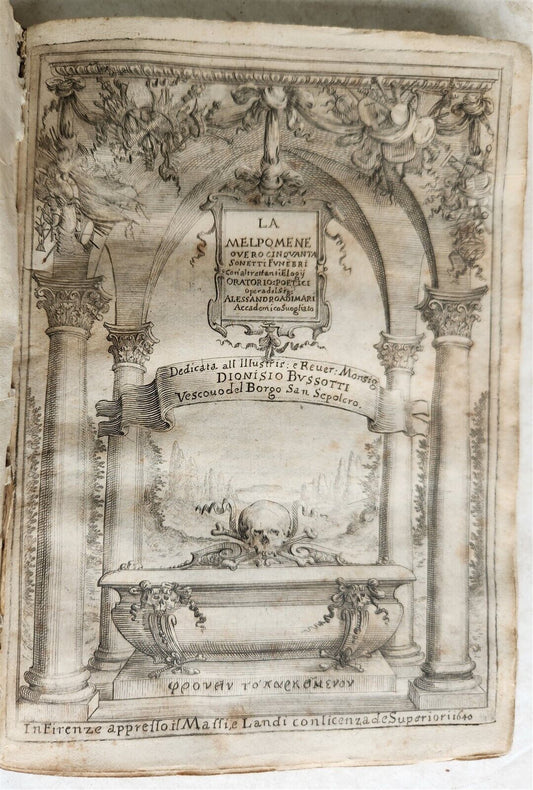 LA
MELPOMENE
OVERO CINQVANTA
SONETTI FVNEBRI
Con altrettanti Elogij
ORATORIO: POETICI
Opera del Sig:
ALESSANDRO ADIMARI
Accademico Suogliato
Dedicata all Illustris: e Reuer: Monsig
DIONISIO BVSSOTTI
Vescouo del Borgo San Sepolcro.
ΦΡΟΥΑΥ ΤΟ ΚΑΡΚΩΜΕΝΟΥ
In Firenze appresso il Massi, e Landi con licenza de Superiori 1640